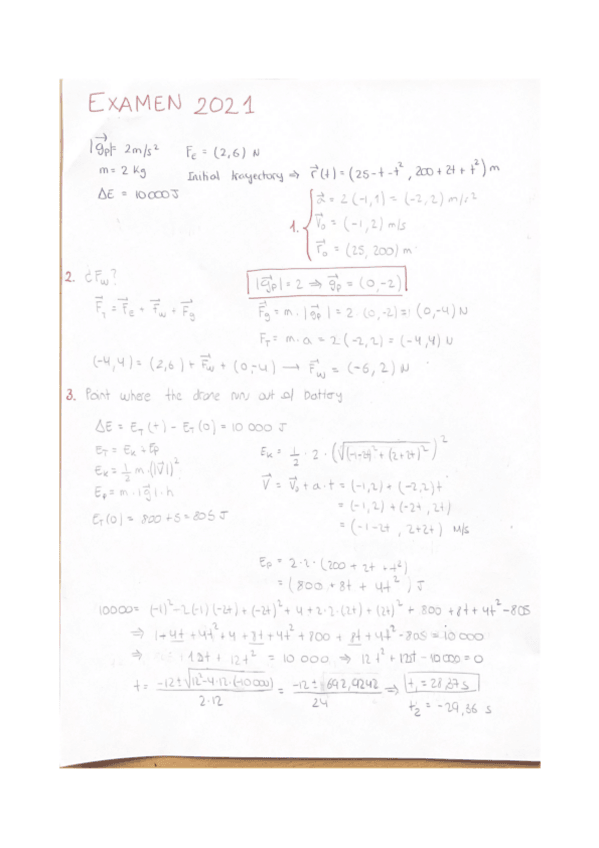 EXAMEN 2021
|g⃗p| = 2m/s² Fε = (2,6) N
m = 2 Kg Initial trayectory ⇒ r⃗(t) = (25-t-t², 200+2t+t²) m
ΔE = 10000J
1. a⃗ = 2(-1,1) = (-2,2) m/s²
V⃗o = (-1,2) m/s
r⃗o = (25, 200) m
2. ¿F⃗w?
|g⃗p| = 2 ⇒ g⃗p = (0,-2)
F⃗T = F⃗E + F⃗w + F⃗g
F⃗g = m · |g⃗p| = 2 · (0,-2) = (0,-4) N
FT = m·a = 2(-2,2) = (-4,4) N
(-4,4) = (2,6) + F⃗w + (0,-4) → F⃗w = (-6,2) N
3. Point where the drone run out of battery
ΔE = ET(t) - ET(0) = 10 000 J
ET = Ek + Ep
Ek = 1/2 · 2 · (√((-1-2t)² + (2+2t)²))²
Ek = 1/2 m · (|V⃗|)²
Ep = m · |g⃗| · h
ET(0) = 800 + 5 = 805 J
V⃗ = V⃗o + a · t = (-1,2) + (-2,2)t
= (-1,2) + (-2t, 2t)
= (-1-2t, 2+2t) m/s
Ep = 2·2·(200 + 2t + t²)
= (800 + 8t + 4t²) J
10000 = (-1)² - 2(-1)(-2t) + (-2t)² + 4 + 2·2·(2t) + (2t)² + 800 + 8t + 4t² - 805
⇒ 1 + 4t + 4t² + 4 + 8t + 4t² + 800 + 8t + 4t² - 805 = 10 000
⇒ 12t² = 10 000 ⇒ 12t² + 12t - 10 000 = 0
t = (-12 ± √(12² - 4·12·(-10 000))) / (2·12) = (-12 ± 692,9242) / 24 ⇒ t₁ = 28,37 s
t₂ = -29,36 s